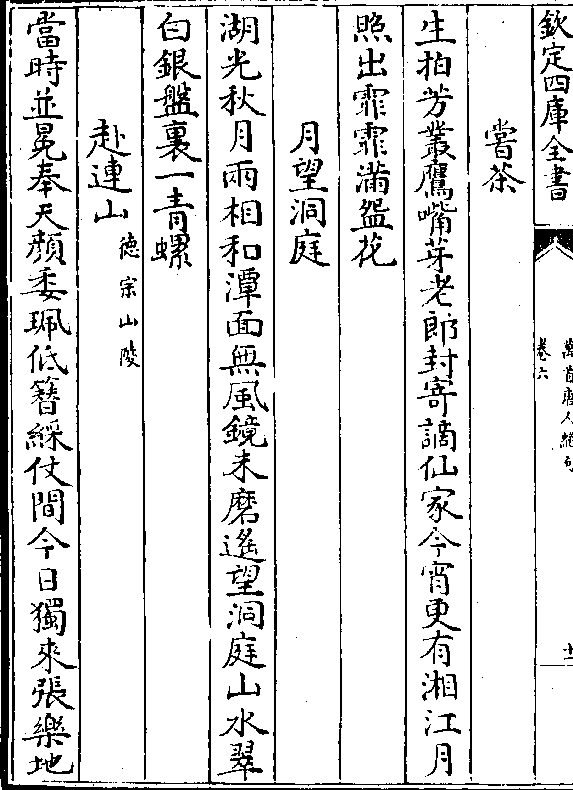 欽定四庫全書
萬首唐人絕句
卷六
十一
嘗茶
生拍芳叢鷹嘴芽老郎封寄謫仙家今宵更有湘江月
照出霏霏滿盌花
月望洞庭
湖光秋月兩相和潭面無風鏡未磨遙望洞庭山水翠
白銀盤裏一青螺
赴連山德宗山陵
當時並冕奉天顏委珮低簪綵仗間今日獨來張樂地